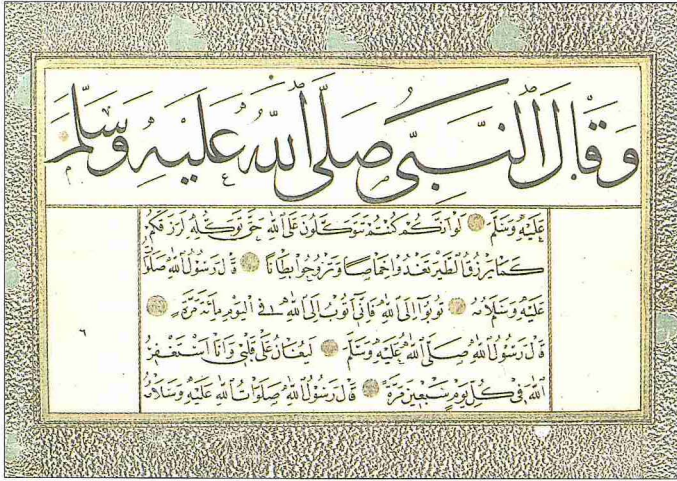 وَقَالَ النَّبِيُّ صَلَّى اللهُ عَلَيْهِ وَسَلَّمَ
عَلَيْهِ وَسَلَّمَ لَوْ أَنَّكُمْ كُنْتُمْ تَتَوَكَّلُونَ عَلَى اللهِ حَقَّ تَوَكُّلِهِ لَرَزَقَكُمْ
كَمَا يَرْزُقُ الطَّيْرَ تَغْدُوا خِمَاصًا وَتَرُوحُ بِطَانًا قَالَ رَسُولُ اللهِ صَلَوَاتُ
عَلَيْهِ وَسَلَامُهُ تُوبُوا إِلَى اللهِ فَإِنِّي أَتُوبُ إِلَى اللهِ فِي الْيَوْمِ مِائَةَ مَرَّةٍ
قَالَ رَسُولُ اللهِ صَلَّى اللهُ عَلَيْهِ وَسَلَّمَ لَيُغَانُ عَلَى قَلْبِي وَأَنَا أَسْتَغْفِرُ
اللهَ فِي كُلِّ يَوْمٍ سَبْعِينَ مَرَّةً قَالَ رَسُولُ اللهِ صَلَوَاتُ اللهِ عَلَيْهِ وَسَلَامُهُ
٦